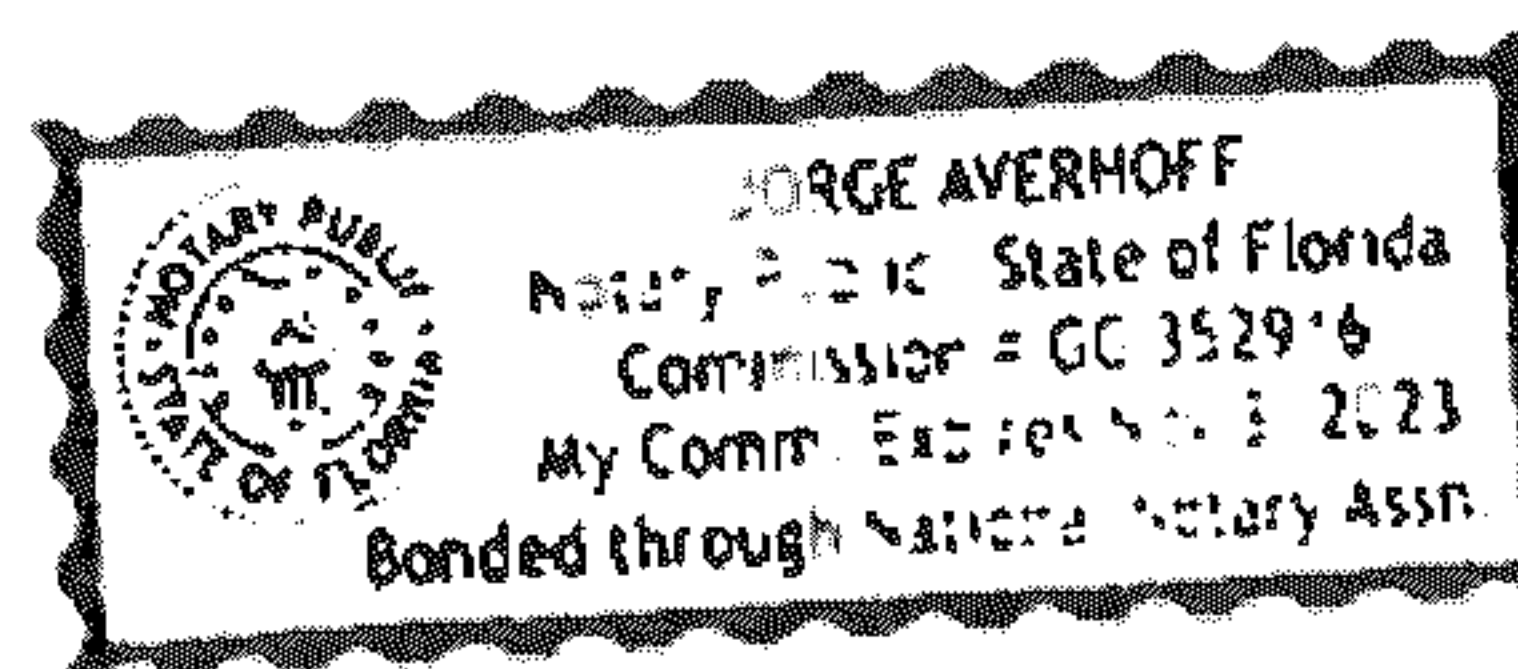 NOTARY PUBLIC
STATE OF FLORIDA
JORGE AVERHOFF
Notary Public State of Florida
Commission # GG
My Comm. Expires 2023
Bonded through National Notary Assn.